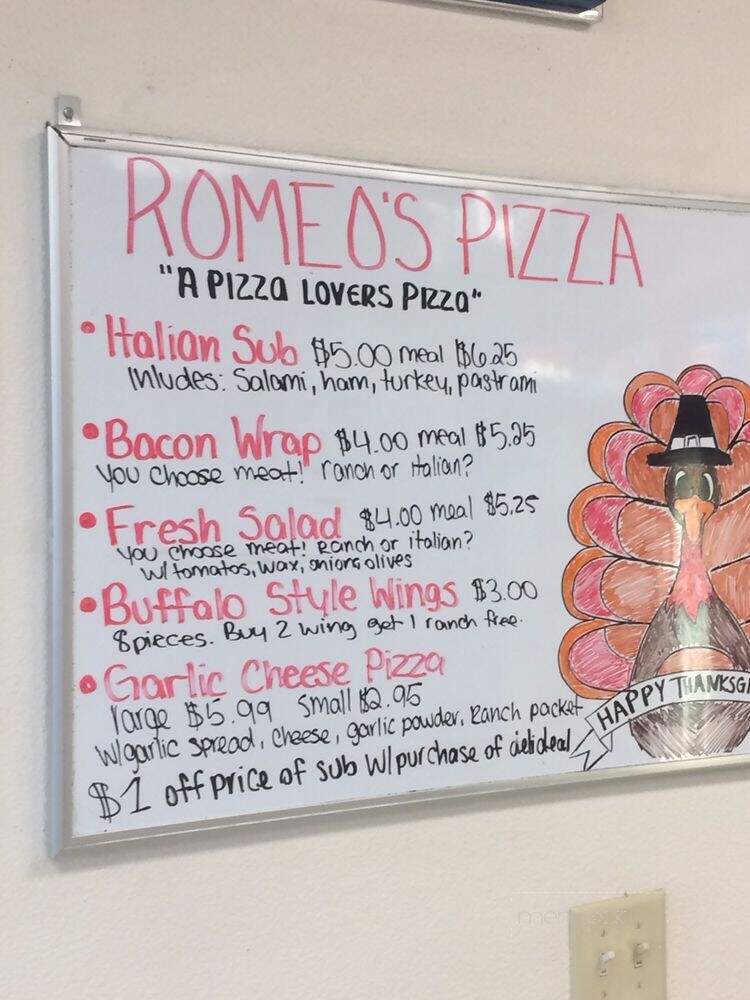 ROMEO'S PIZZA
"A PIZZA LOVERS PIZZA"
• Italian Sub $5.00 meal $6.25
Inludes: Salami, ham, turkey, pastrami
• Bacon Wrap $4.00 meal $5.25
You choose meat! ranch or italian?
• Fresh Salad $4.00 meal $5.25
You choose meat! Ranch or italian?
w/ tomatos, wax, onions olives
• Buffalo Style Wings $3.00
8 pieces. Buy 2 wing get 1 ranch free.
• Garlic Cheese Pizza
large $5.99 small $2.95
w/garlic spread, cheese, garlic powder, Ranch packet
$1 off price of sub w/ purchase of deli deal
HAPPY THANKSGI